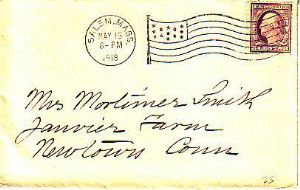 SALEM, MASS.
MAY 15
8-PM
1918
Mrs Mortimer Smith
Janvier Farm
Newtown Conn
25